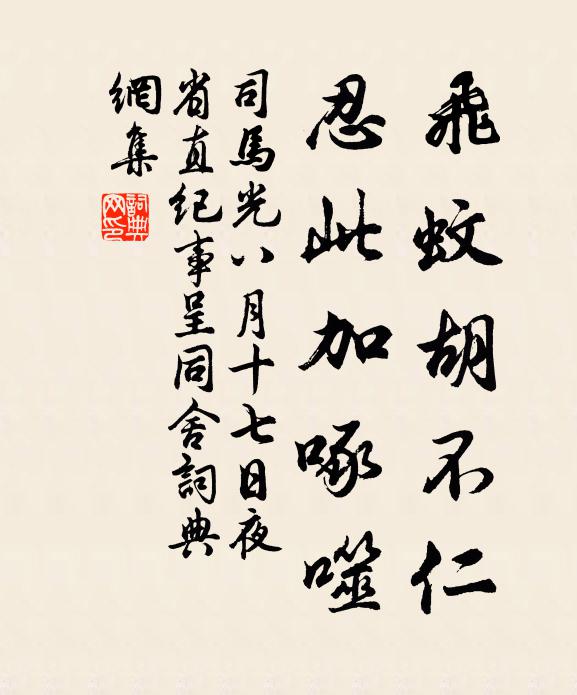 飛蚊胡不仁
忍此加啄噬
司馬光八月十七日夜
省直紀事呈同舍詞典
網集
詞典网印